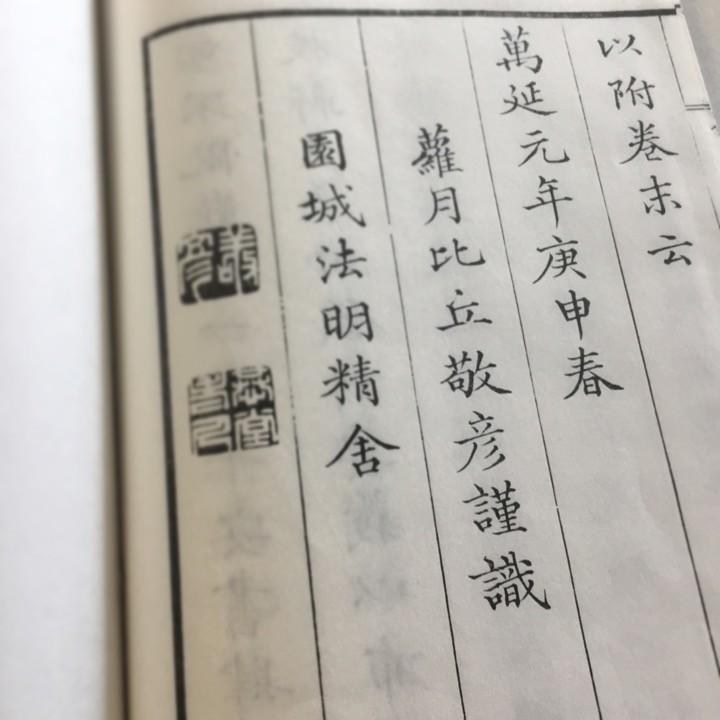 以附巻末云
萬延元年庚申春
蘿月比丘敬彦謹識
園城法明精舍
敬彦